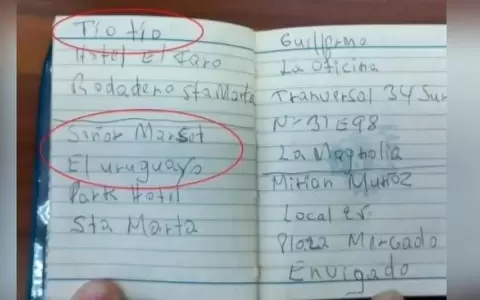 Tío tío
Hotel El Faro
Rodadero Sta Marta
Señor Marset
El uruguayo
Park Hotel
Sta Marta
Guillermo
La Oficina
Tranversal 34 Sur
N: 31 E 98
La Magnolia
Mirian Muñoz
Local
Plaza Mercado
Envigado